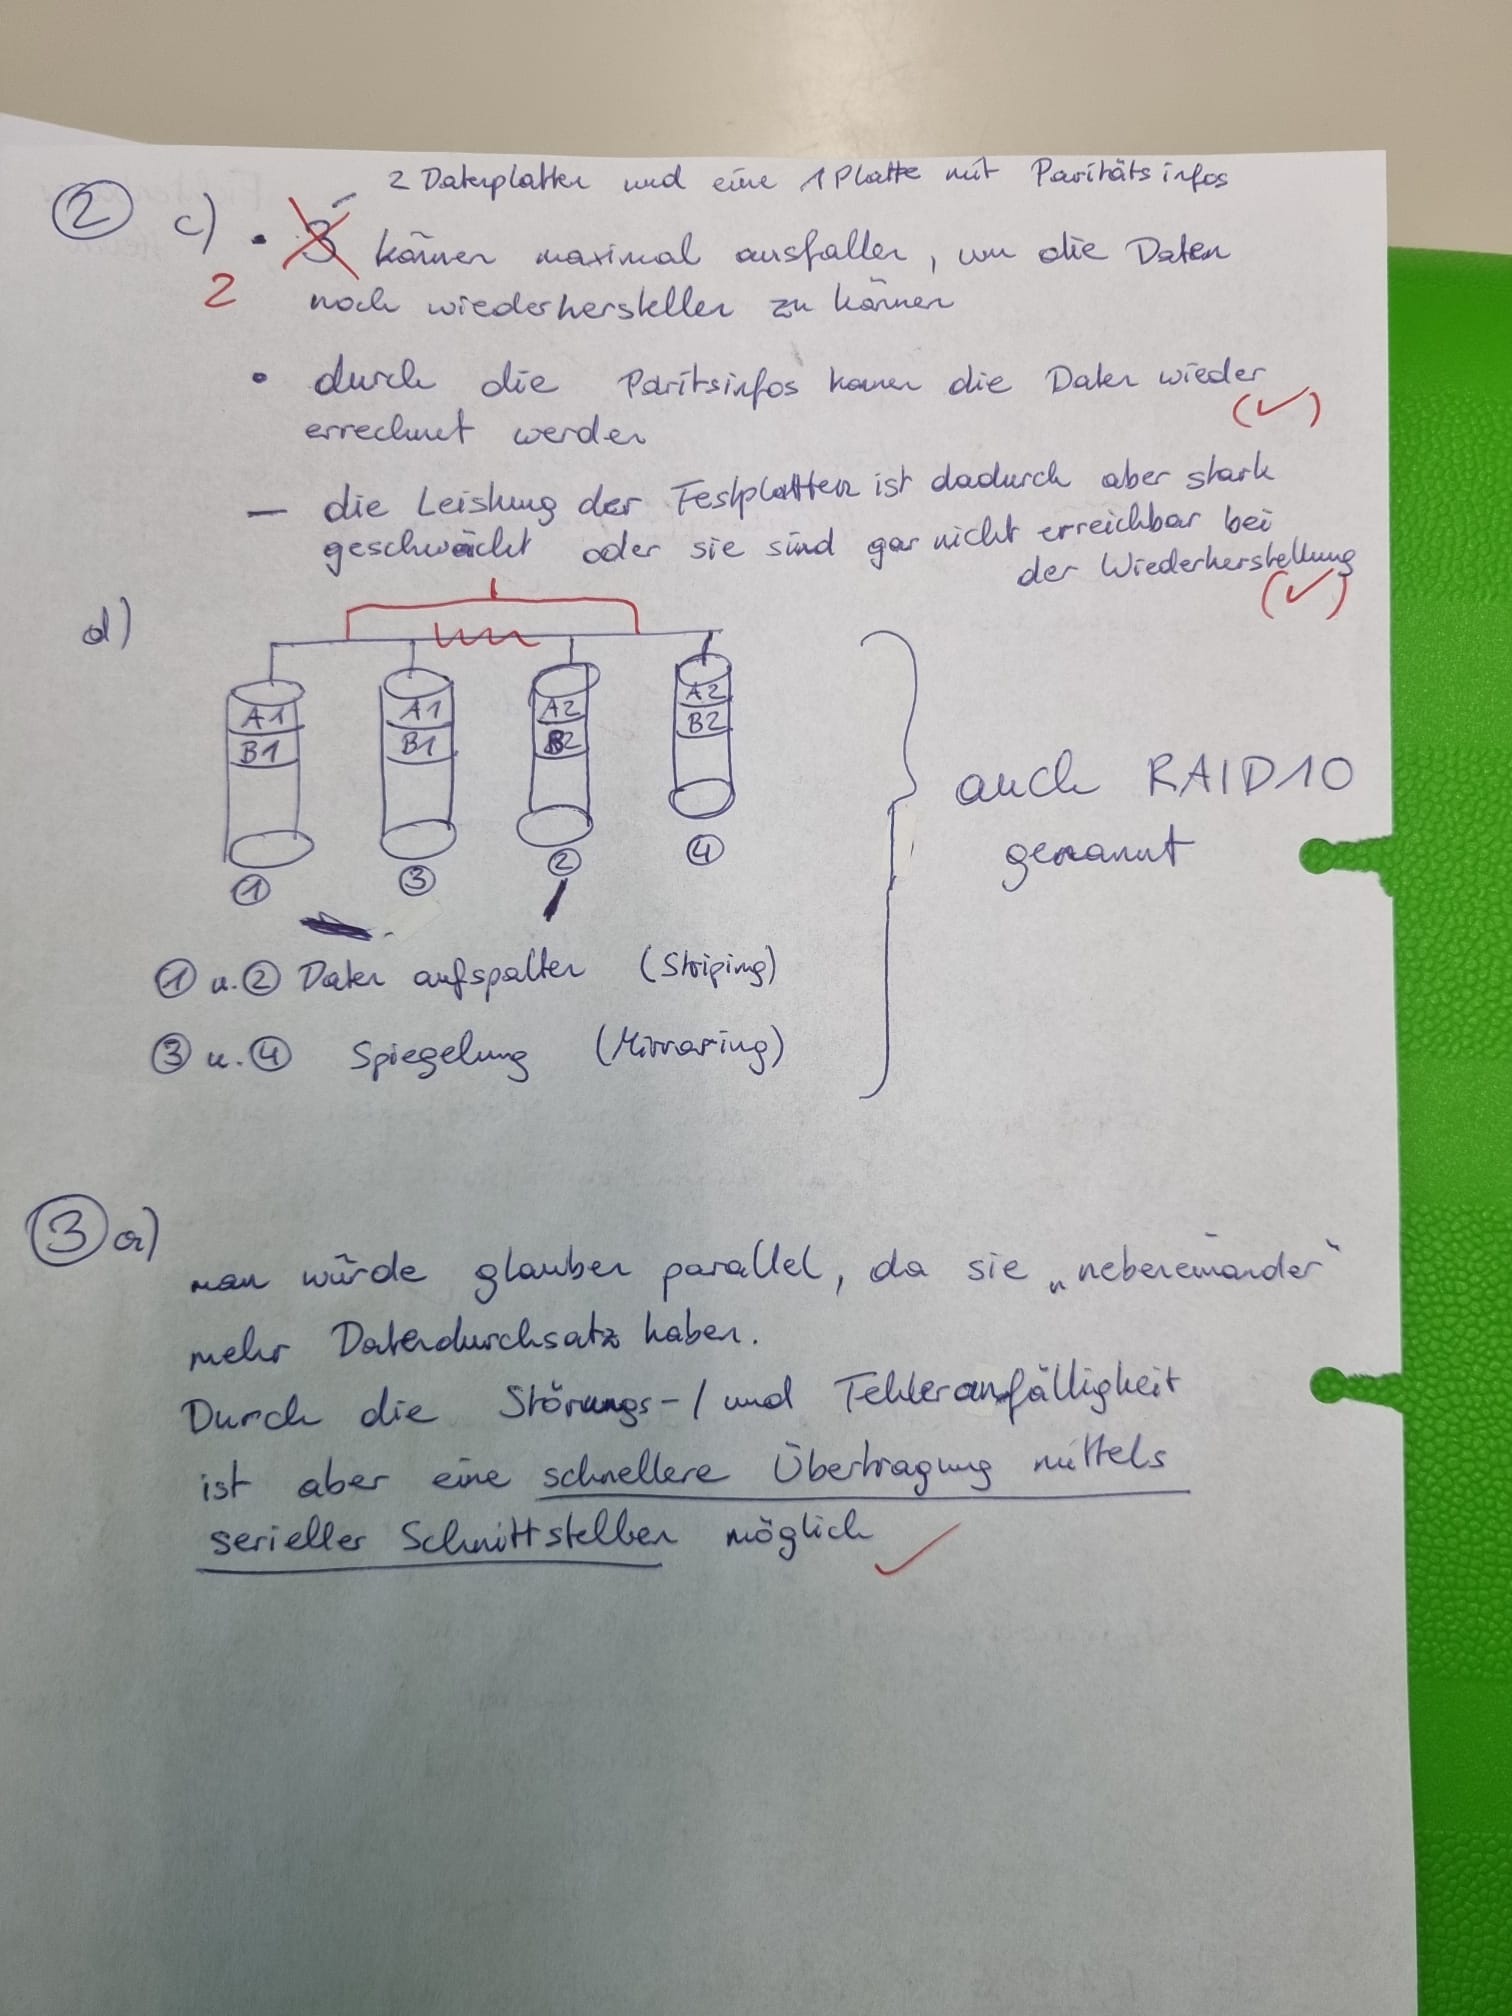 2 Datenplatten und eine 1 Platte mit Paritätsinfos
② c) • 3 können maximal ausfallen, um die Daten
2 noch wiederherstellen zu können
• durch die Paritsinfos konnen die Daten wieder
(✓)
errechnet werden
– die Leistung der Festplatten ist dadurch aber stark
geschwächt oder sie sind gar nicht erreichbar bei
der Wiederherstellung
(✓)
d)
A1 A1 A2 A2
B1 B1 B2 B2
① ③ ② ④
auch RAID10
genannt
① u. ② Daten aufspalten (Striping)
③ u. ④ Spiegelung (Mirroring)
③ a)
man würde glauben parallel, da sie „nebeneinander“
mehr Datendurchsatz haben.
Durch die Störungs-/ und Fehleranfälligkeit
ist aber eine schnellere Übertragung mittels
serieller Schnittstellen möglich ✓